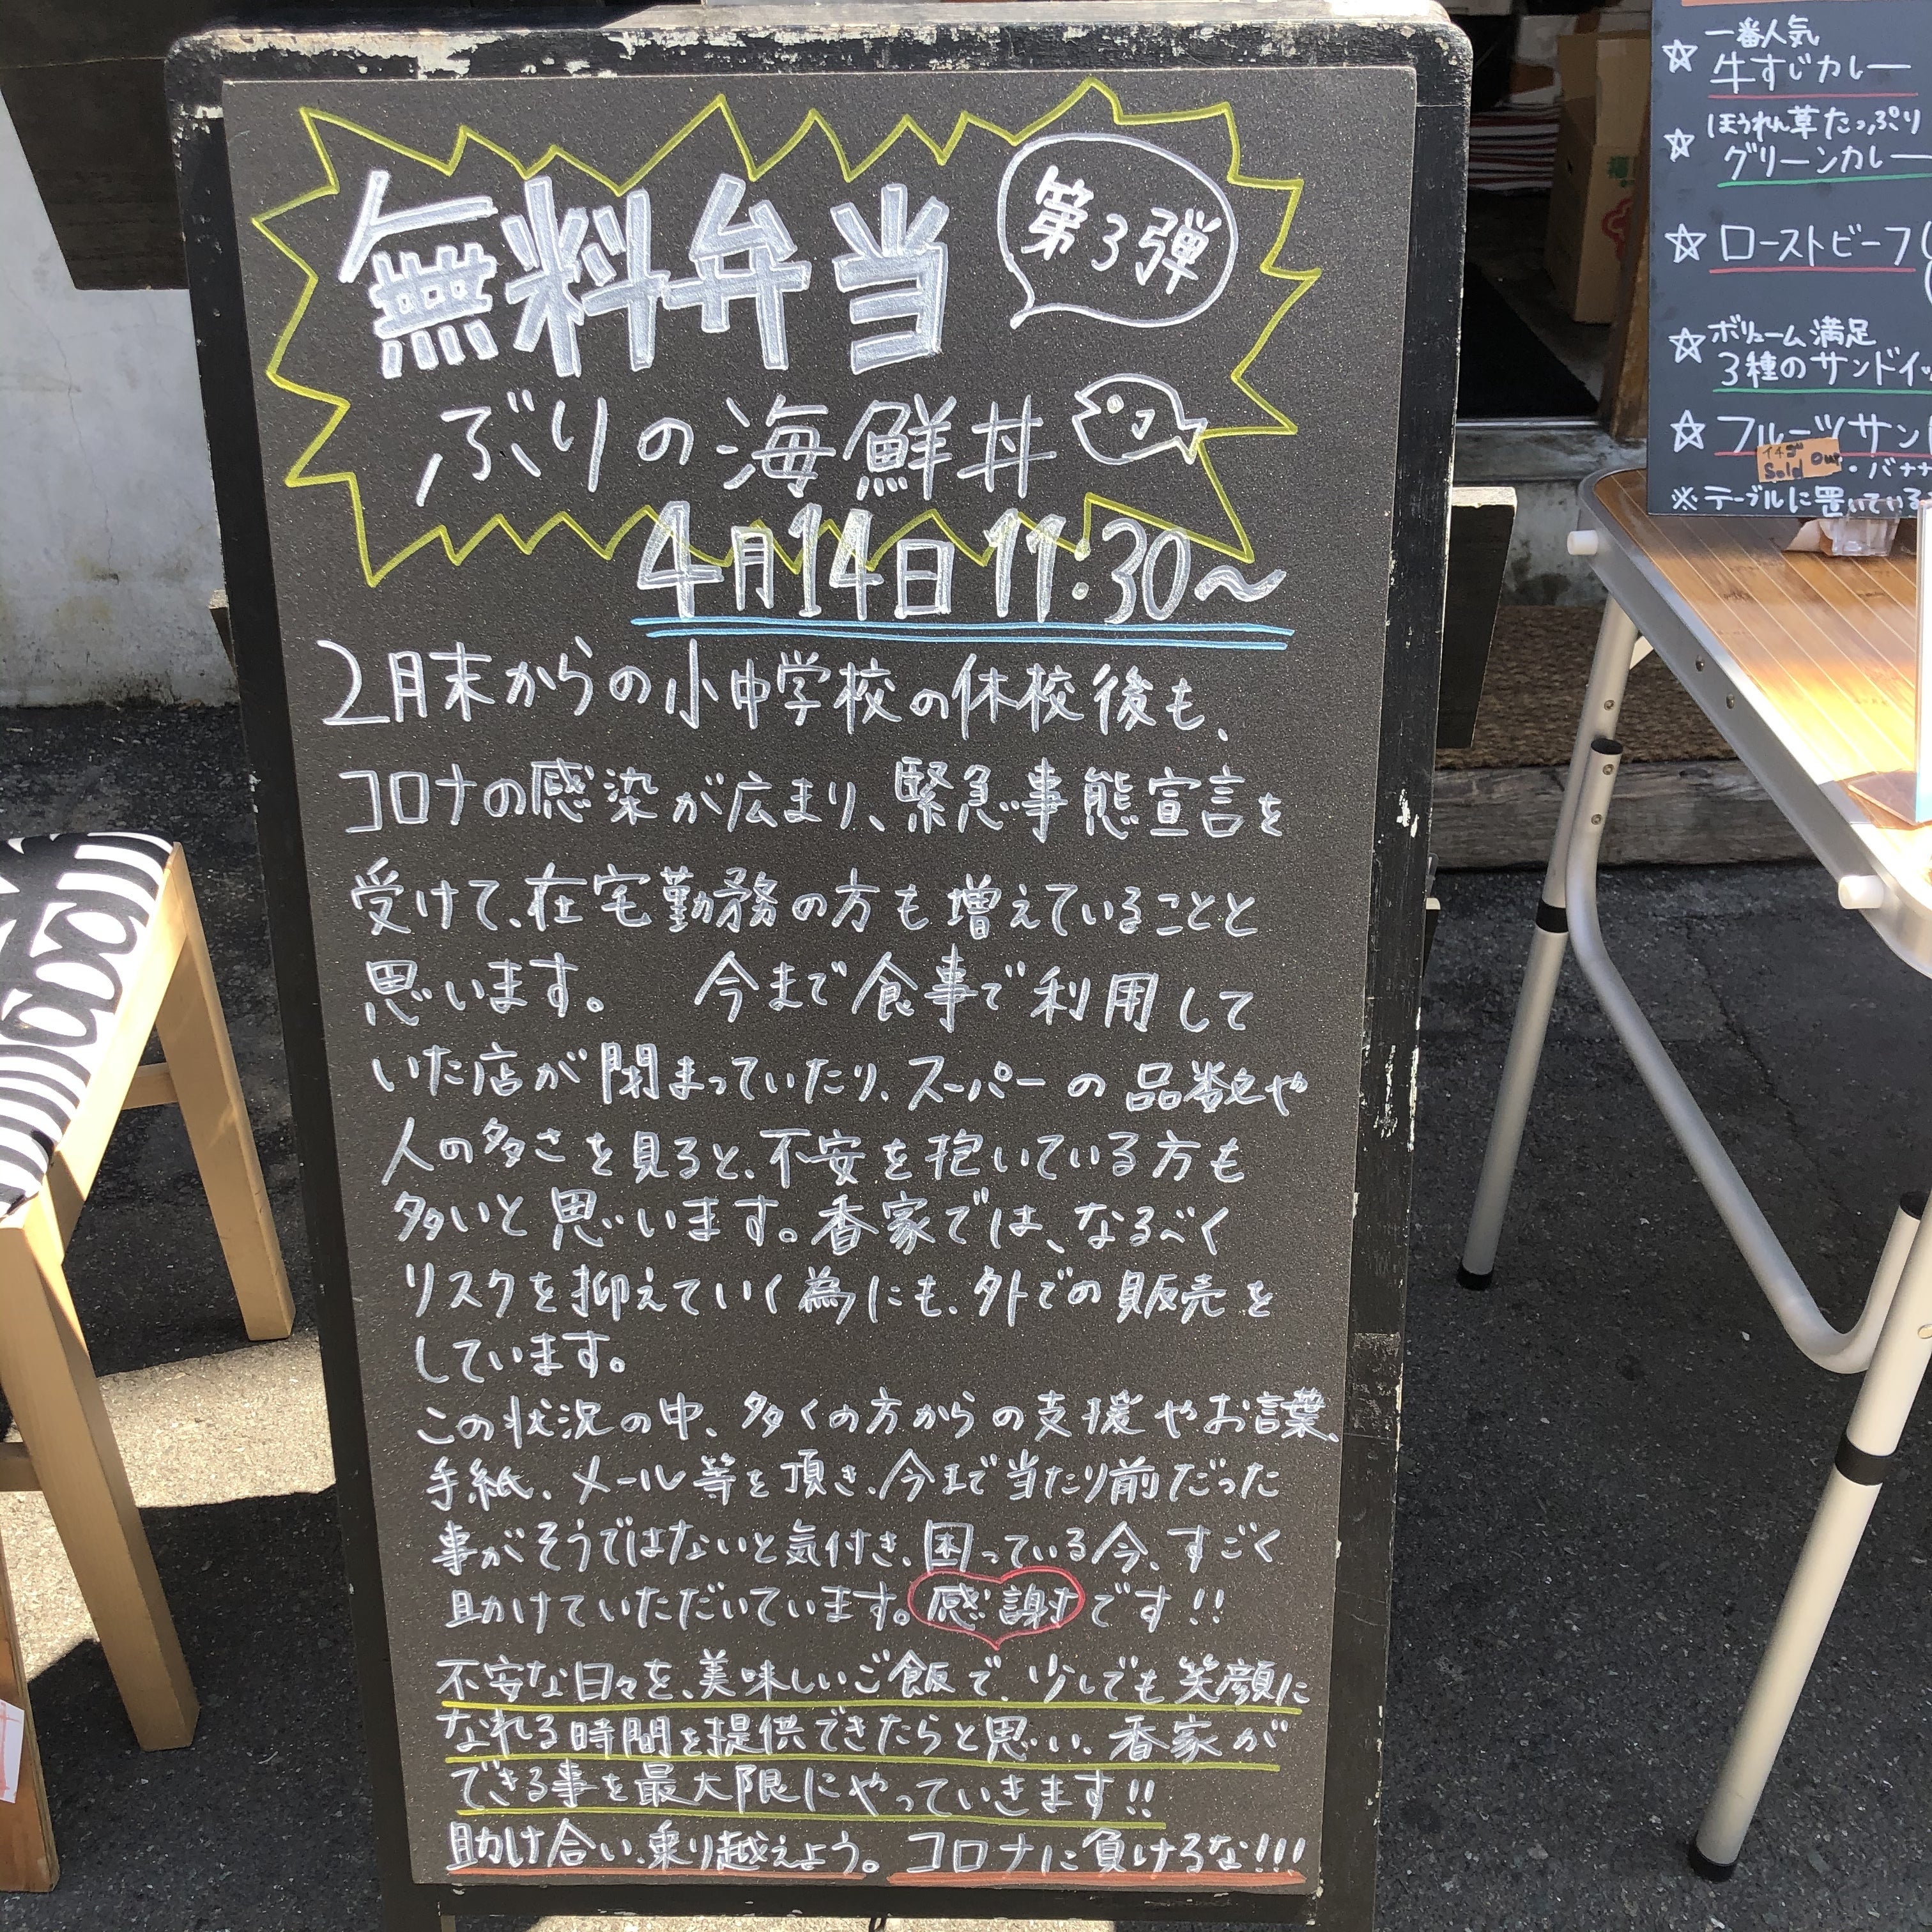 無料弁当
第3弾
ぶりの海鮮丼
4月14日 11:30〜
2月末からの小中学校の休校後も、
コロナの感染が広まり、緊急事態宣言を
受けて、在宅勤務の方も増えていることと
思います。 今まで食事で利用して
いた店が閉まっていたり、スーパーの品数や
人の多さを見ると、不安を抱いている方も
多いと思います。香家では、なるべく
リスクを抑えていく為にも、外での販売を
しています。
この状況の中、多くの方からの支援やお言葉、
手紙、メール等を頂き、今まで当たり前だった
事がそうではないと気付き、困っている今、すごく
助けていただいています。感謝です!!
不安な日々を、美味しいご飯で、少しでも笑顔に
なれる時間を提供できたらと思い、香家が
できる事を最大限にやっていきます!!
助け合い、乗り越えよう。コロナに負けるな!!!
☆一番人気
牛すじカレー
☆ほうれん草たっぷり
グリーンカレー
☆ローストビーフ
☆ボリューム満足
3種のサンドイッ
☆フルーツサン
イチゴ
Sold Out
・バナナ
※テーブルに置いている